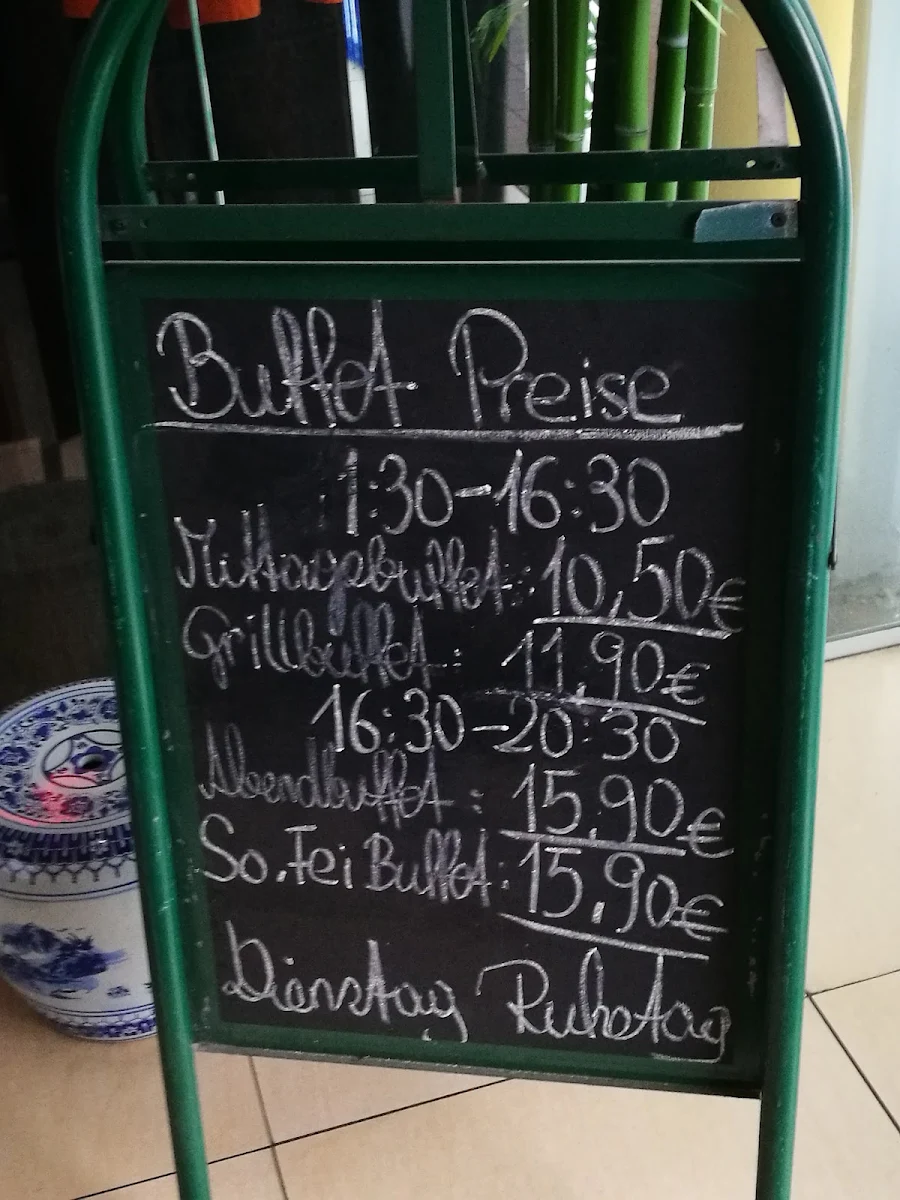 Buffet Preise
1:30-16:30
Mittagsbuffet: 10,50€
Grillbuffet: 11,90€
16:30-20:30
Abendbuffet: 15,90€
So.Fei Buffet: 15,90€
Dienstag Ruhetag